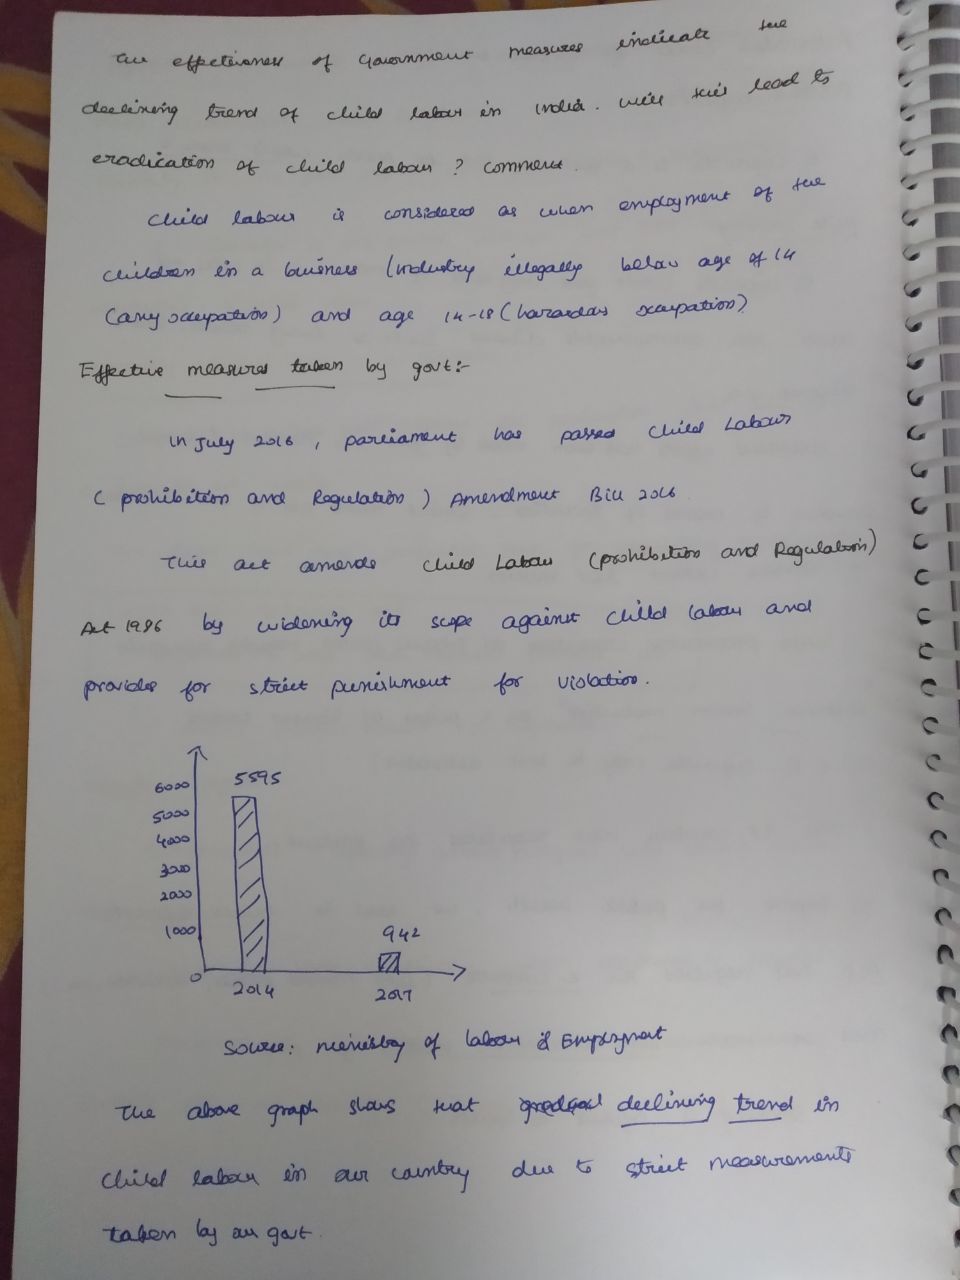 The effectiveness of Government measures indicate the
declining trend of child labour in India. Will this lead to
eradication of child labour? Comment.
Child labour is considered as when employment of the
children in a business/industry illegally below age of 14
(any occupation) and age 14-18 (hazardous occupation)
Effective measures taken by govt:-
In July 2016, parliament has passed Child Labour
(prohibition and Regulation) Amendment Bill 2016.
This act amends Child Labour (prohibition and Regulation)
Act 1986 by widening its scope against child labour and
provides for strict punishment for violation.
6000 5595
5000
4000
3000
2000
1000 942
0
2014 2017
Source: Ministry of labour & Employment
The above graph shows that declining trend in
child labour in our country due to strict measurements
taken by our govt.